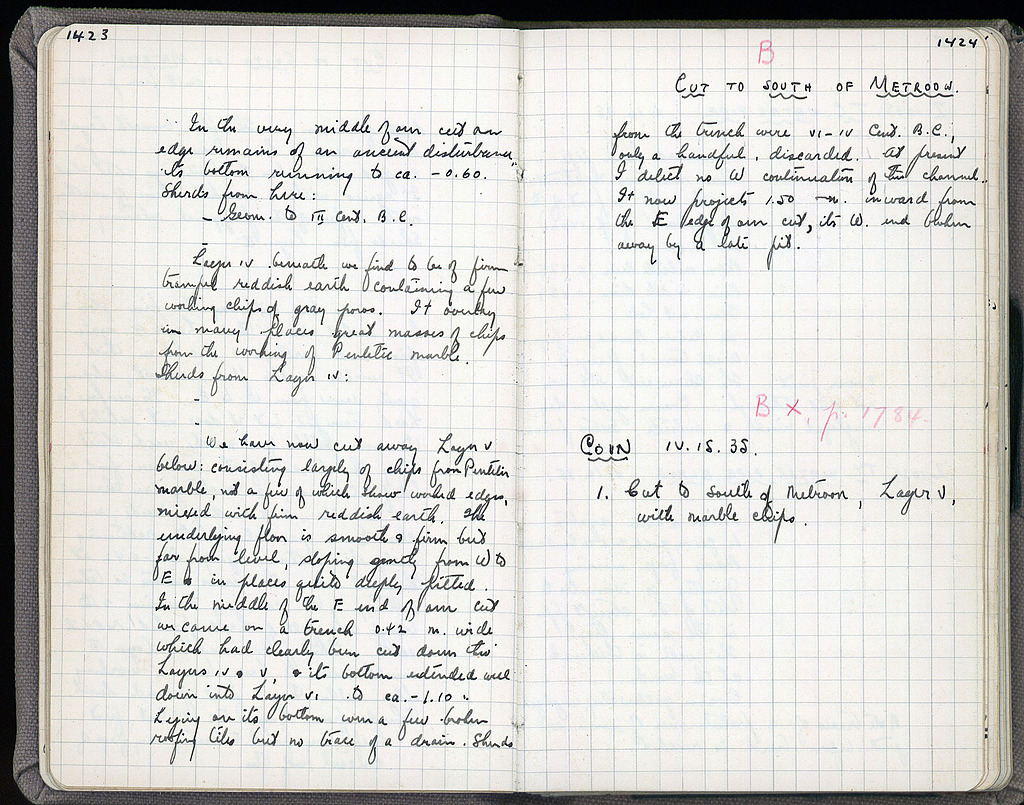 1423
In the very middle of our cut on
edge remains of an ancient disturbance,
its bottom running to ca. -0.60.
Sherds from here:
- Geom. to III Cent. B.C.
-
Layer IV beneath we find to be of firm
trampled reddish earth containing a few
working chips of gray poros. It overlay
in many places great masses of chips
from the working of Pentelic marble.
Sherds from Layer IV:
-
-
We have now cut away Layer V
below: consisting largely of chips from Pentelic
marble, not a few of which show worked edges,
mixed with firm reddish earth. The
underlying floor is smooth & firm but
far from level, sloping gently from W to
E & in places quite deeply pitted.
In the middle of the E end of our cut
we came on a trench 0.42 m. wide
which had clearly been cut down thro'
Layers IV & V, & its bottom extended well
down into Layer VI to ca. -1.10.
Lying on its bottom were a few broken
roofing tiles but no trace of a drain. Sherds
1424
B
CUT TO SOUTH OF METROON.
from the trench were VI-IV Cent. B.C.,
only a handful, discarded. At present
I detect no W continuation of this channel.
It now projects 1.50 m. inward from
the E edge of our cut, its W. end broken
away by a late pit.
B X, p. 1784.
COIN IV.15.35.
1. Cut to south of Metroon, Layer V,
with marble chips.